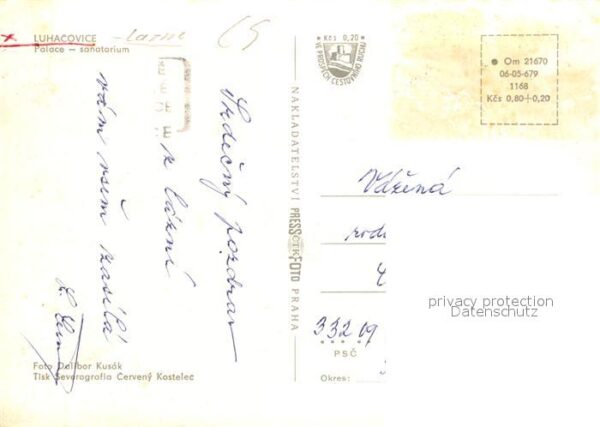 LUHAČOVICE - lazně
Palace – sanatorium
Srdečný pozdrav
z lázní
vám všem zasílá
Foto Dalibor Kusák
Tisk Severografia Červený Kostelec
NAKLADATELSTVÍ PRESSFOTO PRAHA
ČTK
Kčs 0,20
VE PROSPĚCH CESTOVNÍHO RUCHU
Om 21670
06-05-679
1168
Kčs 0,80+0,20
Vážená
rodi
332 09
PSČ
Okres:
privacy protection
Datenschutz